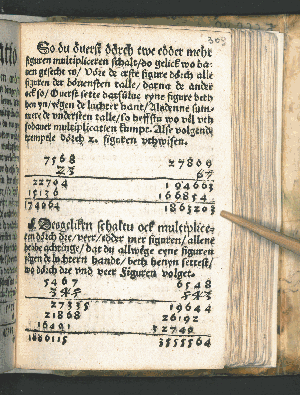 308
So du överst dörch twe edder mehr
figuren multipliceren schalt/ do gelick wo ba-
uen gesecht is/ Före de erste figure dörch alle
figuren der bövensten talle/ darna de ander
ock so/ Överst sette datsülue eyne figure beth
hen yn/ yegen de luchter hant/ Aldenne sum-
mere de vndersten talle/ so heffstu wo vel vth
sodaner multiplicatien kumpt. Alse volgende
exempele dörch 2. figuren vthwisen.
7568 27809
23 67
22704 194663
15136 166854
174064 1863203
Desgeliken schaltu ock multiplice-
ren dörch dre/ veer/ edder mer figuren/ allene
hebbe achtinge/ dat du allwege eyne figuren
yegen de luchtern handt/ beth henyn settest/
wo dörch dre vnd veer Figuren volget.
5467 6548
345 543
27335 19644
21868 26192
16401 32740
1886115 3555564